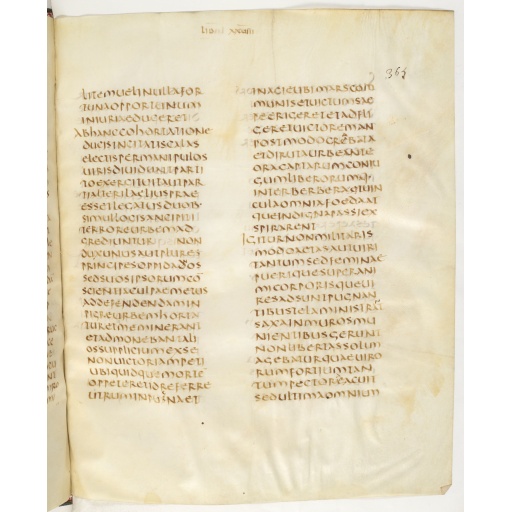 LIBER XXVIII
365
ARTEMUELINULLAFOR
TUNAOPPORTEINUM
INIURIAEDUCERETIS
ABHANCCOHORTATIONE
DUCISINCITATISCALAS
ELECTISPERMANIPULOS
UIRISDIUIDUNTPARTI
TOEXERCITUITAUTPAR
TIALTERILAELIUSPRAE
ESSETLEGATUSDUOBUS
SIMULLOCISANCIPITI
TERROREURBEMAD
GREDIUNTUR NON
DUXUNUSAUTPLURES
PRINCIPESOPPIDANOS
SEDSUOSIPSORUMCO̅
SCIENTIACULPAEMETUS
ADDEFENDENDAMIN
PIGREURBEMHORTA
TURETMEMINERANT
ETADMONEBANTALI
OSSUPPLICIUMEXSE
NONUICTORIAMPETI
UBIQUIDQUEMORTE
OPPETERETIDREFERRE
UTRUMINPUGNAET
INACIEUBIMARSCOM
MUNISETUICTUMSAE
PEERIGERETETADFLI
GERETUICTOREMAN
POSTMODOCREMATA
ETDIRUTAURBEANTE
ORACAPTARUMCONIU
GUMLIBERORUMQ·
INTERBERBERAETUIN
CULAOMNIAFOEDAAT
QUEINDIGNAPASSIEX
SPIRARENT
IGITURNONMILITARIS
MODOAETASAUTUIRI
TANTUMSEDFEMINAE
PUERIQUESUPERANI
MICORPORISQUEUI
RESADSUNTPUGNAN
TIBUSTELAMINISTRANT
SAXAINMUROSMU
NIENTIBUSGERUNT
NONLIBERTASSOLUM
AGEBATURQUAEUIRO
RUMFORTIUMTAN
TUMPECTOREACUIT
SEDULTIMAOMNIUM